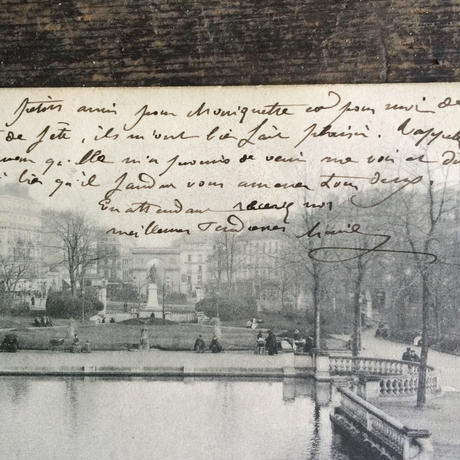 petits amis pour Moniquette et pour moi de
de fête, ils m'ont bien fait plaisir. Rappelle
qu'elle m'a promis de venir me voir et
bien qu'il faudra vous amener tous deux.
En attendant recevez nos
meilleures tendresses Marie